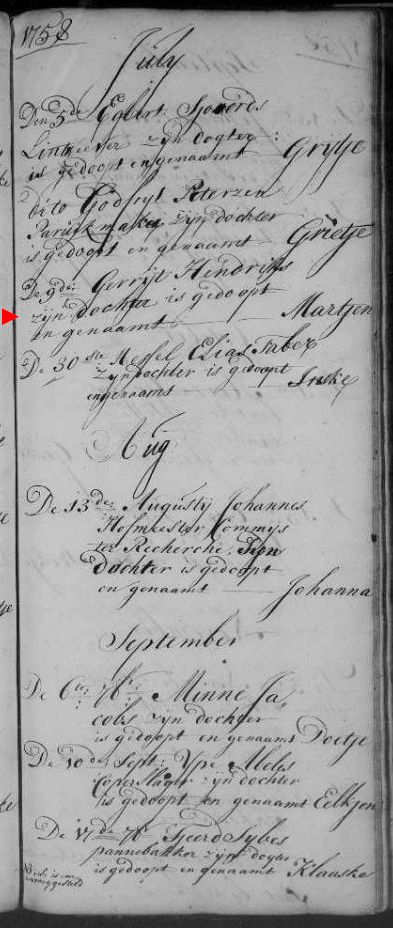 1758
July
Den 5de Egbert Sjoerds
Lintwever zijn dogter
is gedoopt en genaamt Grijtje
dito Godfryt Peterzen
Paruikmaker zijn dochter
is gedoopt en genaamt Grietje
De 9de Gerryt Hendriks
zijn dochter is gedoopt
en genaamt Martjen
De 30ste Elias Faber
zijn dochter is gedoopt
en genaamt
Aug
De 13de Augusty Johannes
Hofmeester Commys
ter Recherche zijn
dochter is gedoopt
en genaamt Johanna
September
De 6te 7br Minne Ja,
cobs zijn dochter
is gedoopt en genaamt Doetje
De 10de Sept: Ype Melis
Coperslager zijn dochter
is gedoopt en genaamt Eelkjen
De 17de 7br Tjeerd Sybes
pannebakker zijn dogter
is gedoopt en genaamt Klaaske